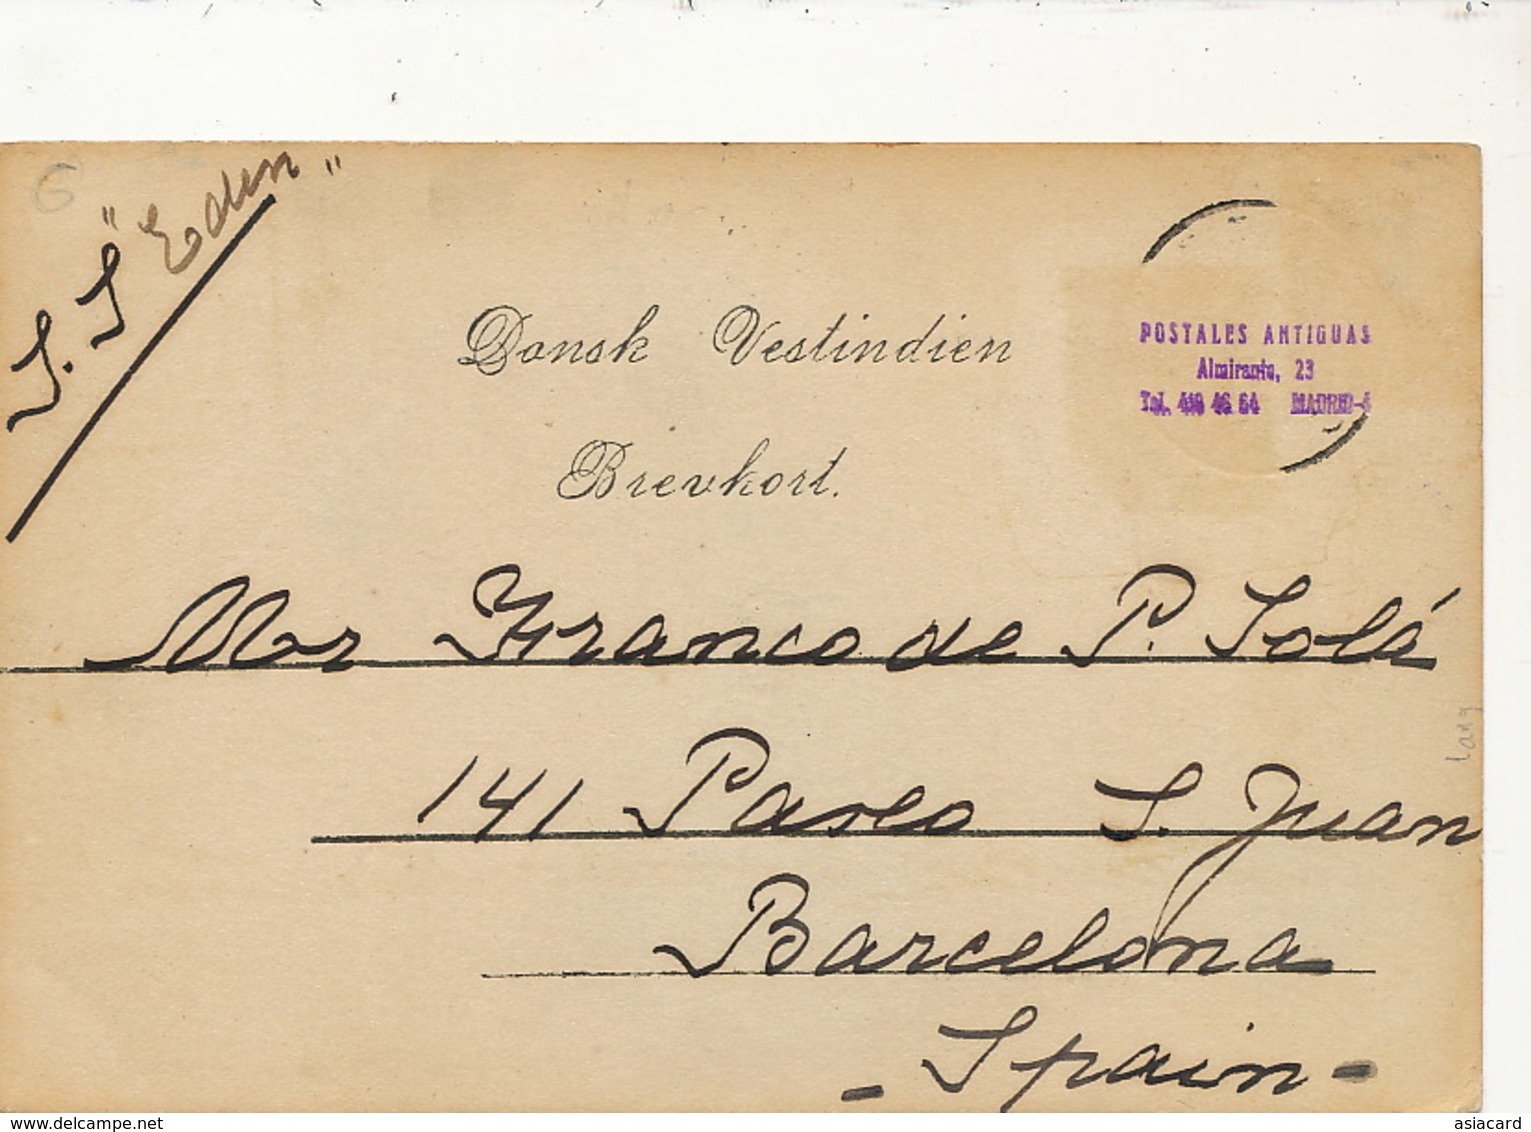 G
S.S. "Eden"
Dansk Vestindien
POSTALES ANTIGUAS
Almirante, 23
Tel. 419 46 64 MADRID-4
Brevkort.
Mr Franco de P. Solá
141 Paseo S. Juan
Barcelona
- Spain -
Lang
www.delcampe.net
asiacard